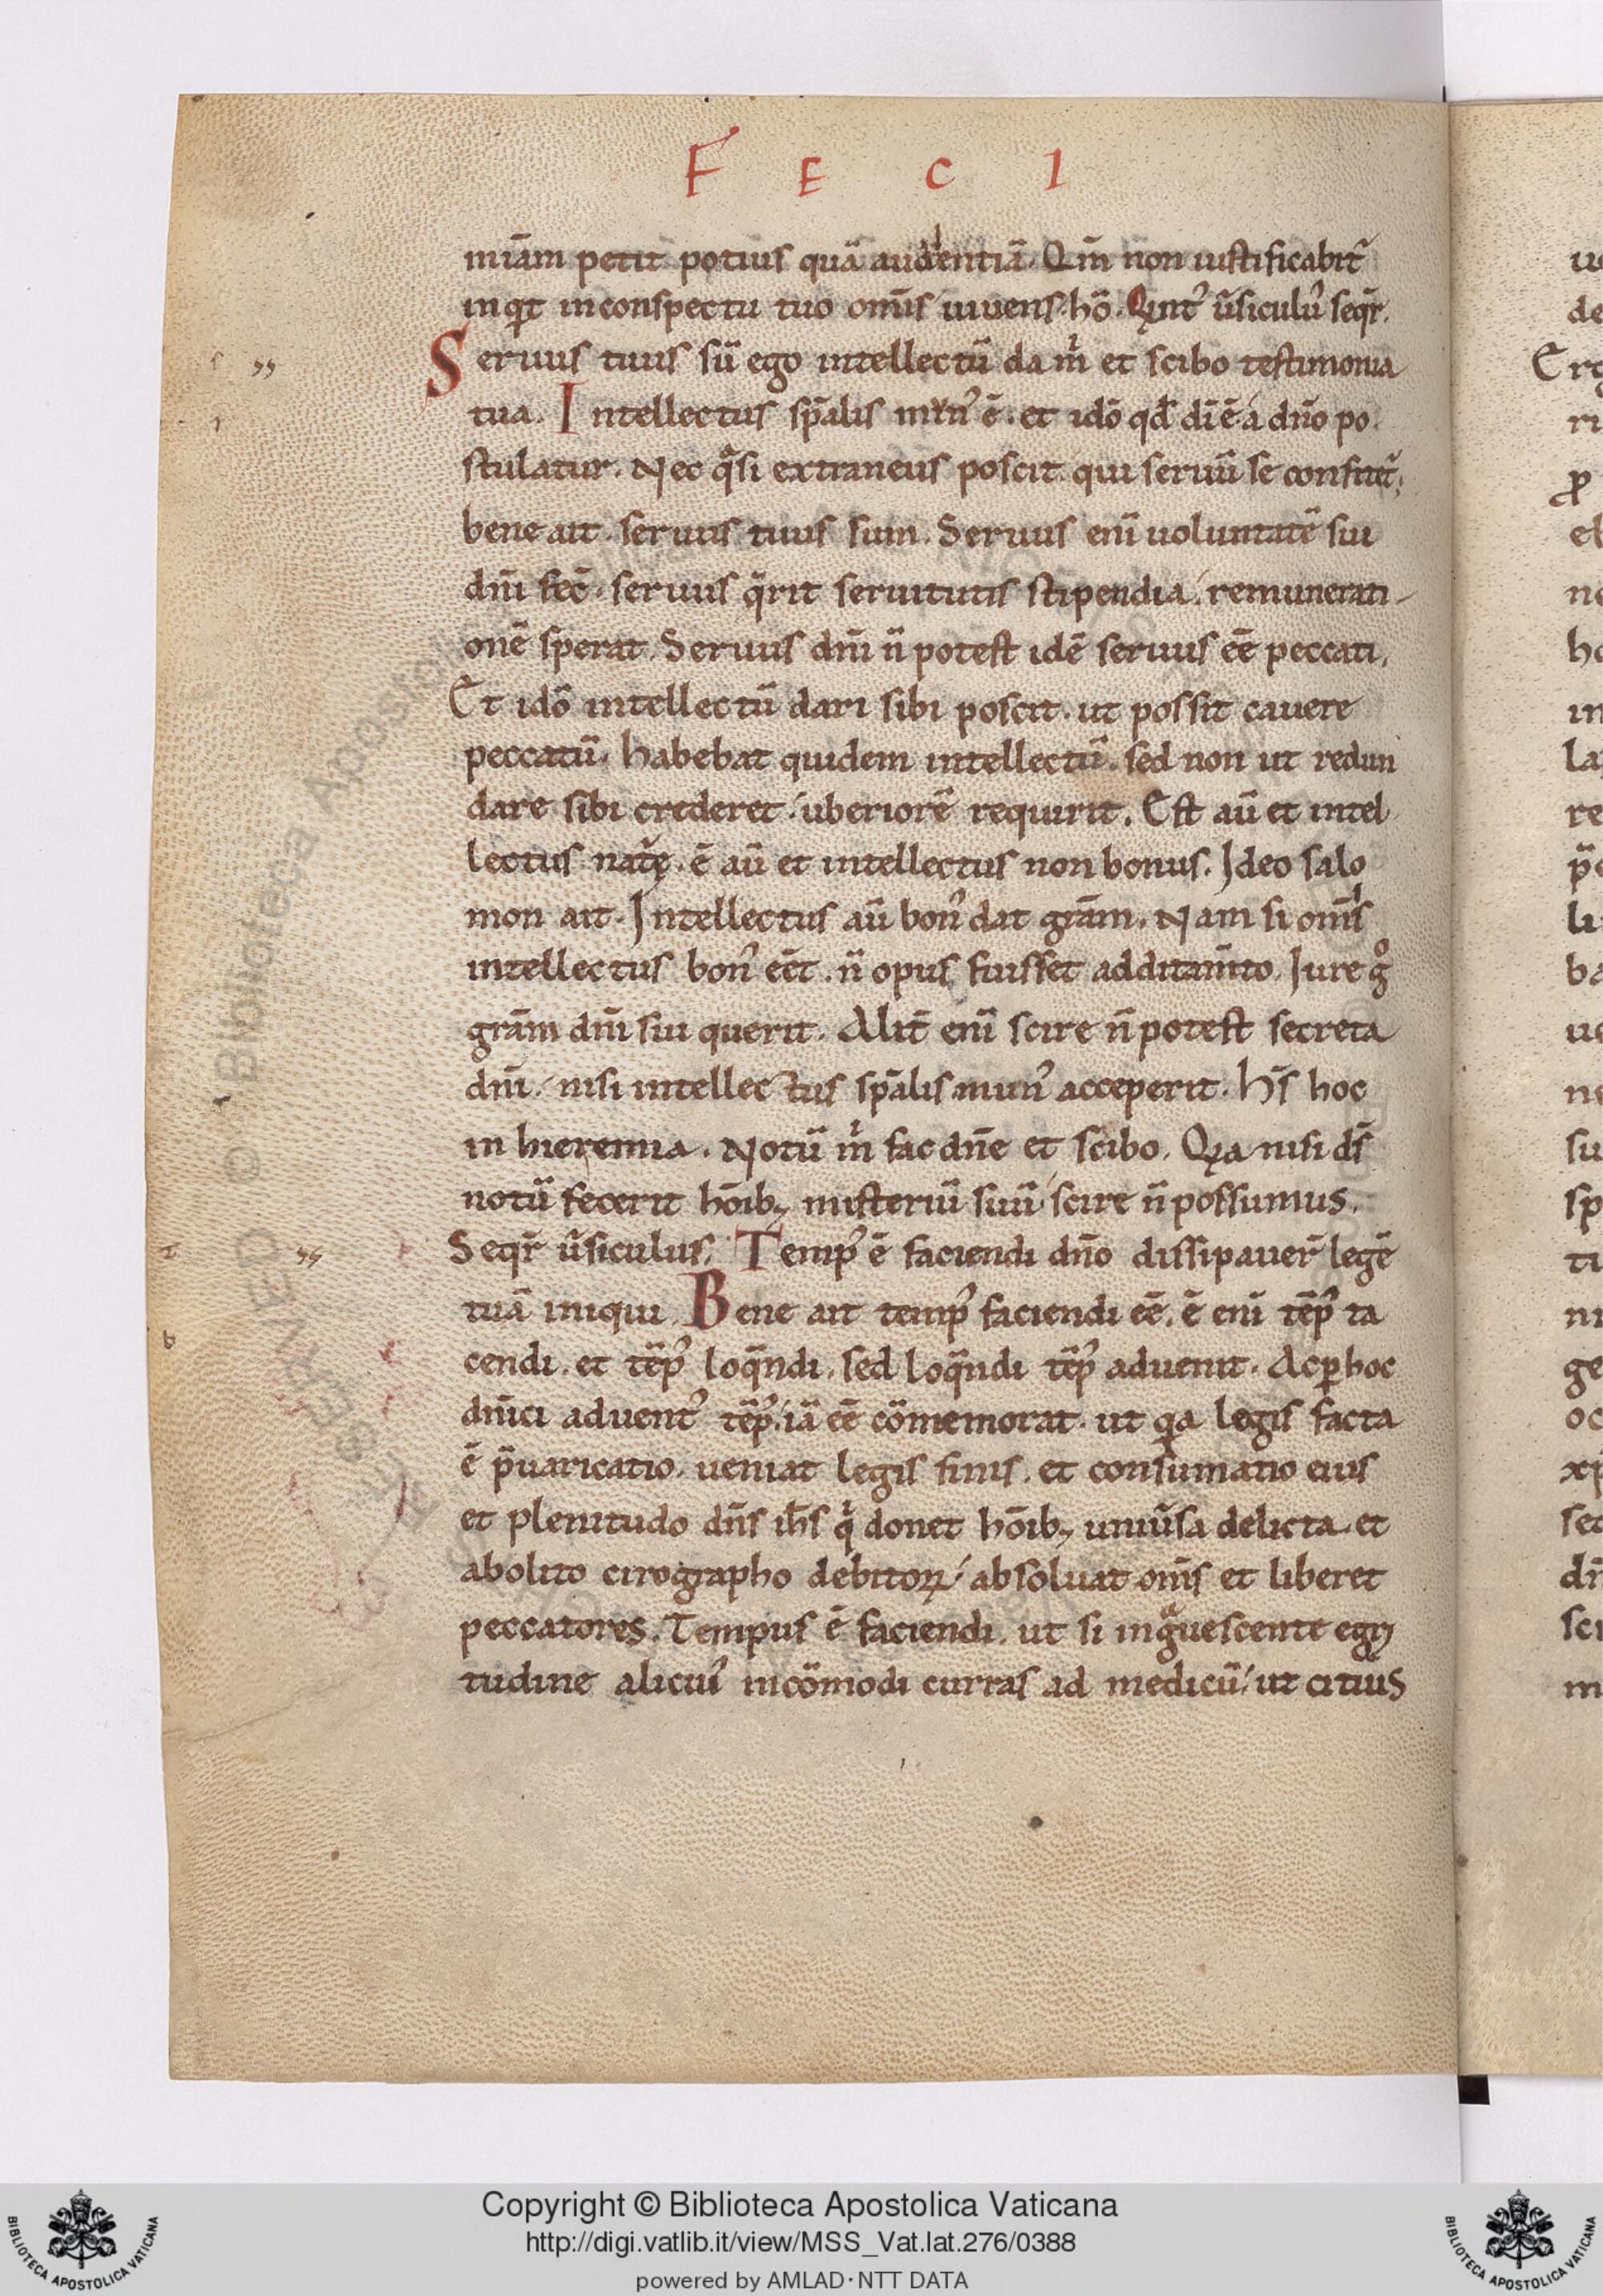 F E C I
mīam petit potius quā audentiā. Qm̄ non iustificabit᷑
inqͥt in conspectu tuo om̄is uiuens hō. Qͥnt᾽ ūsiculu᾽ seqr̄.
Seruus tuus sū ego intellectū da mͥ et scibo testimonia
tua. Intellectus sp̄alis mun᾽ ē. et idō qd̄ diē a dn̄o po
stulatur. Nec qͣsi extraneus poscit qui seruū se confitet᷑;
bene ait. seruus tuus sum. Seruus enī uoluntatē sui
dn̄i fec̄. seruus qͣrit seruitutis stipendia. remunerati-
onē sperat. Seruus dn̄i n̄ potest idē seruus eē peccati.
Et idō intellectū dari sibi poscit. ut possit cauere
peccatū. habebat quidem intellectū. sed non ut redun
dare sibi crederet. uberiorē requirit. Est aū et intel
lectus nat᷑ę. ē aū et intellectus non bonus. Ideo salo
mon ait. Intellectus aū bon᾽ dat grām. Nam si om̄is
intellectus bon᾽ eēt. n̄ opus fuisset additam̄to. Iure gͦ
grām dn̄i sui querit. Alit̄ enī scire n̄ potest secreta
dn̄i. nisi intellectus sp̄alis mun᾽ acceperit. hs̄ hoc
in hieremia. Notū mͥ fac dn̄e et scibo. Qͥa nisi ds̄
notū fecerit hōib; misteriū suū scire n̄ possumus.
Seqr̄ ūsiculus. Temp᾽ ē faciendi dn̄o dissipauer̄ legē
tuā iniqui. Bene ait temp᾽ faciendi eē. ē enī tēp᾽ ta
cendi. et tēp᾽ loq̄ndi. sed loq̄ndi tēp᾽ aduenit. Ac ꝑ hoc
dn̄ici aduent᾽ tēp᾽. iā eē cōmemorat. ut qͥa legis facta
ē p̄uaricatio. ueniat legis finis. et consumatio eius
et plenitudo dn̄s ih̄s qͥ donet hōib; uniūsa delicta et
abolito cirographo debitoꝝ. absoluat om̄is et liberet
peccatores. Tempus ē faciendi. ut si ingͣuescente egri
tudine alicui᾽ incōmodi curras ad medicū. ut citius
Copyright © Biblioteca Apostolica Vaticana
http://digi.vatlib.it/view/MSS_Vat.lat.276/0388
powered by AMLAD·NTT DATA
BIBLIOTECA APOSTOLICA VATICANA
BIBLIOTECA APOSTOLICA VATICANA